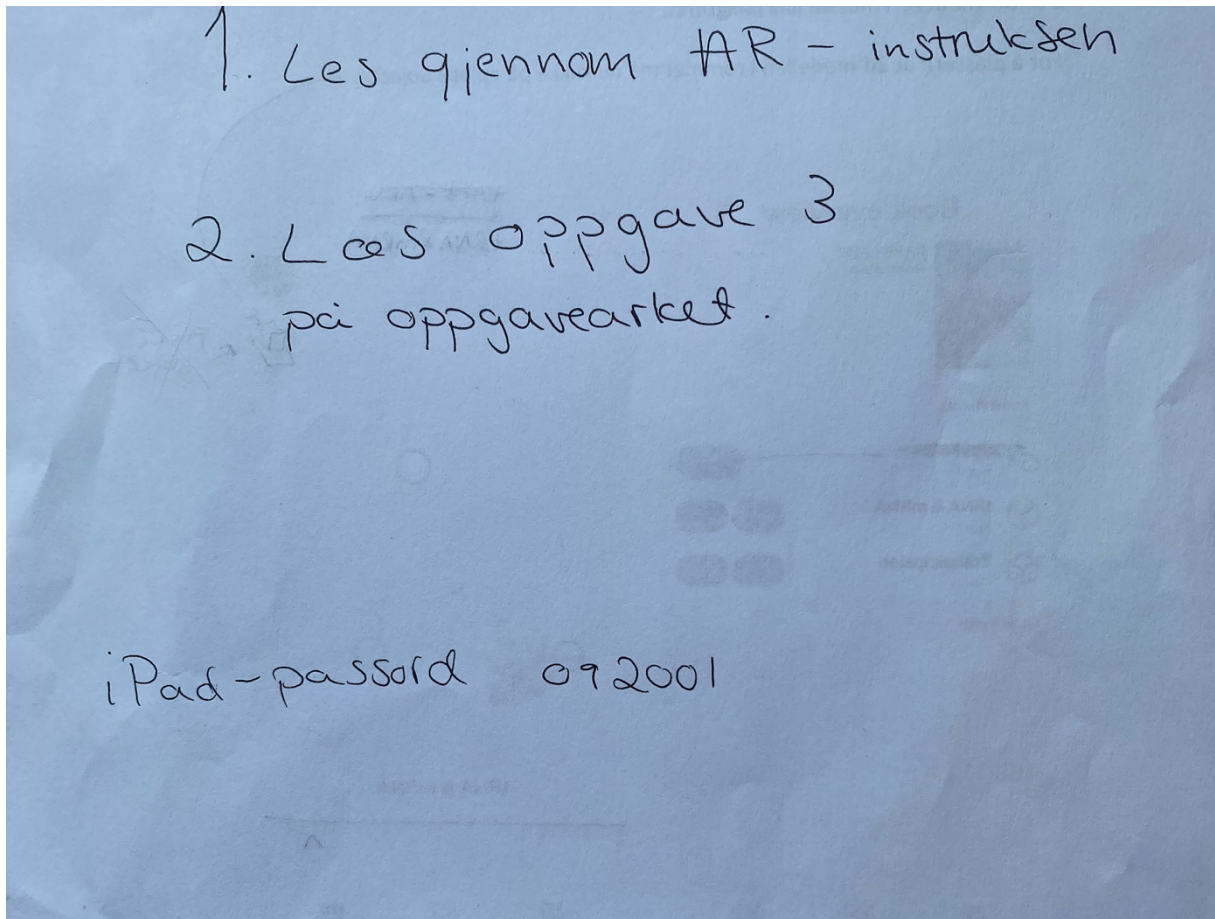 1. Les gjennom AR - instruksen
2. Løs oppgave 3
på oppgavearket.
iPad-passord 092001